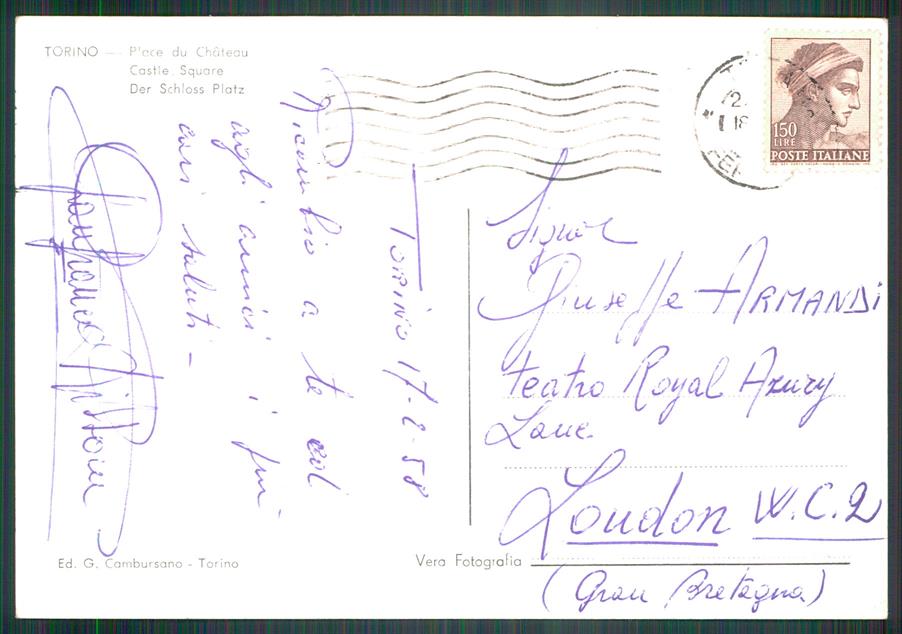 TORINO — Place du Château
Castle Square
Der Schloss Platz
150
LIRE
POSTE ITALIANE
TORINO 17-2-58
Ricambio a te ed
agli amici i più
cari saluti -
Signor
Giuseffe ARMANDI
Teatro Royal Axury
Lane
London W.C.2
(Gran Bretagna)
Ed. G. Cambursano - Torino
Vera Fotografia